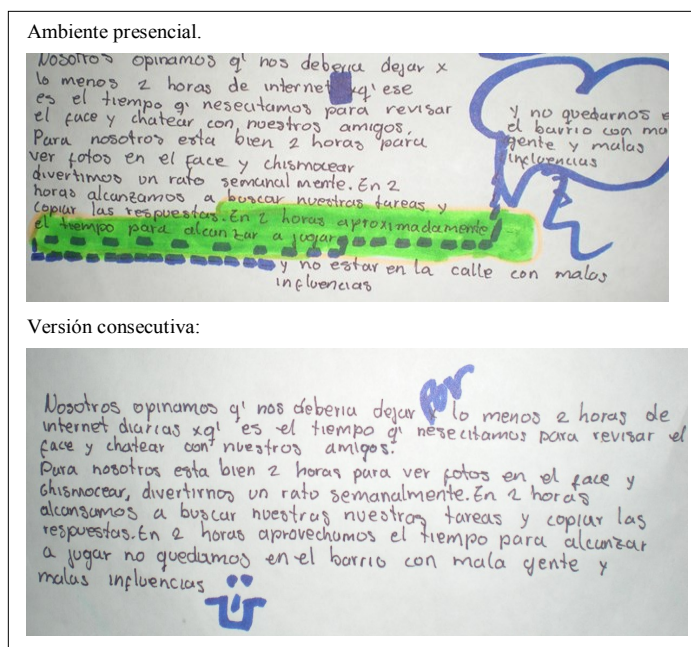 Ambiente presencial.
Nosotros opinamos q' nos deberia dejar x
lo menos 2 horas de internet xq' ese
es el tiempo q' nesecitamos para revisar
el face y chatear con nuestros amigos.
Para nosotros esta bien 2 horas para
ver fotos en el face y chismocear
divertimos un rato semanal mente. En 2
horas alcanzamos a buscar nuestras tareas y
copiar las respuestas. En 2 horas aproximadamente
el tiempo para alcanzar a jugar
y no estar en la calle con malas
influencias
y no quedarnos e
el barrio con ma
gente y malas
influencias
Versión consecutiva:
Nosotros opinamos q' nos deberia dejar por lo menos 2 horas de
internet diarias xq' es el tiempo q' nesecitamos para revisar el
face y chatear con nuestros amigos.
Para nosotros esta bien 2 horas para ver fotos en el face y
chismocear, divertirnos un rato semanalmente. En 2 horas
alcansamos a buscar nuestras nuestras tareas y copiar las
respuestas. En 2 horas aprovechamos el tiempo para alcanzar
a jugar no quedarnos en el barrio con mala gente y
malas influencias